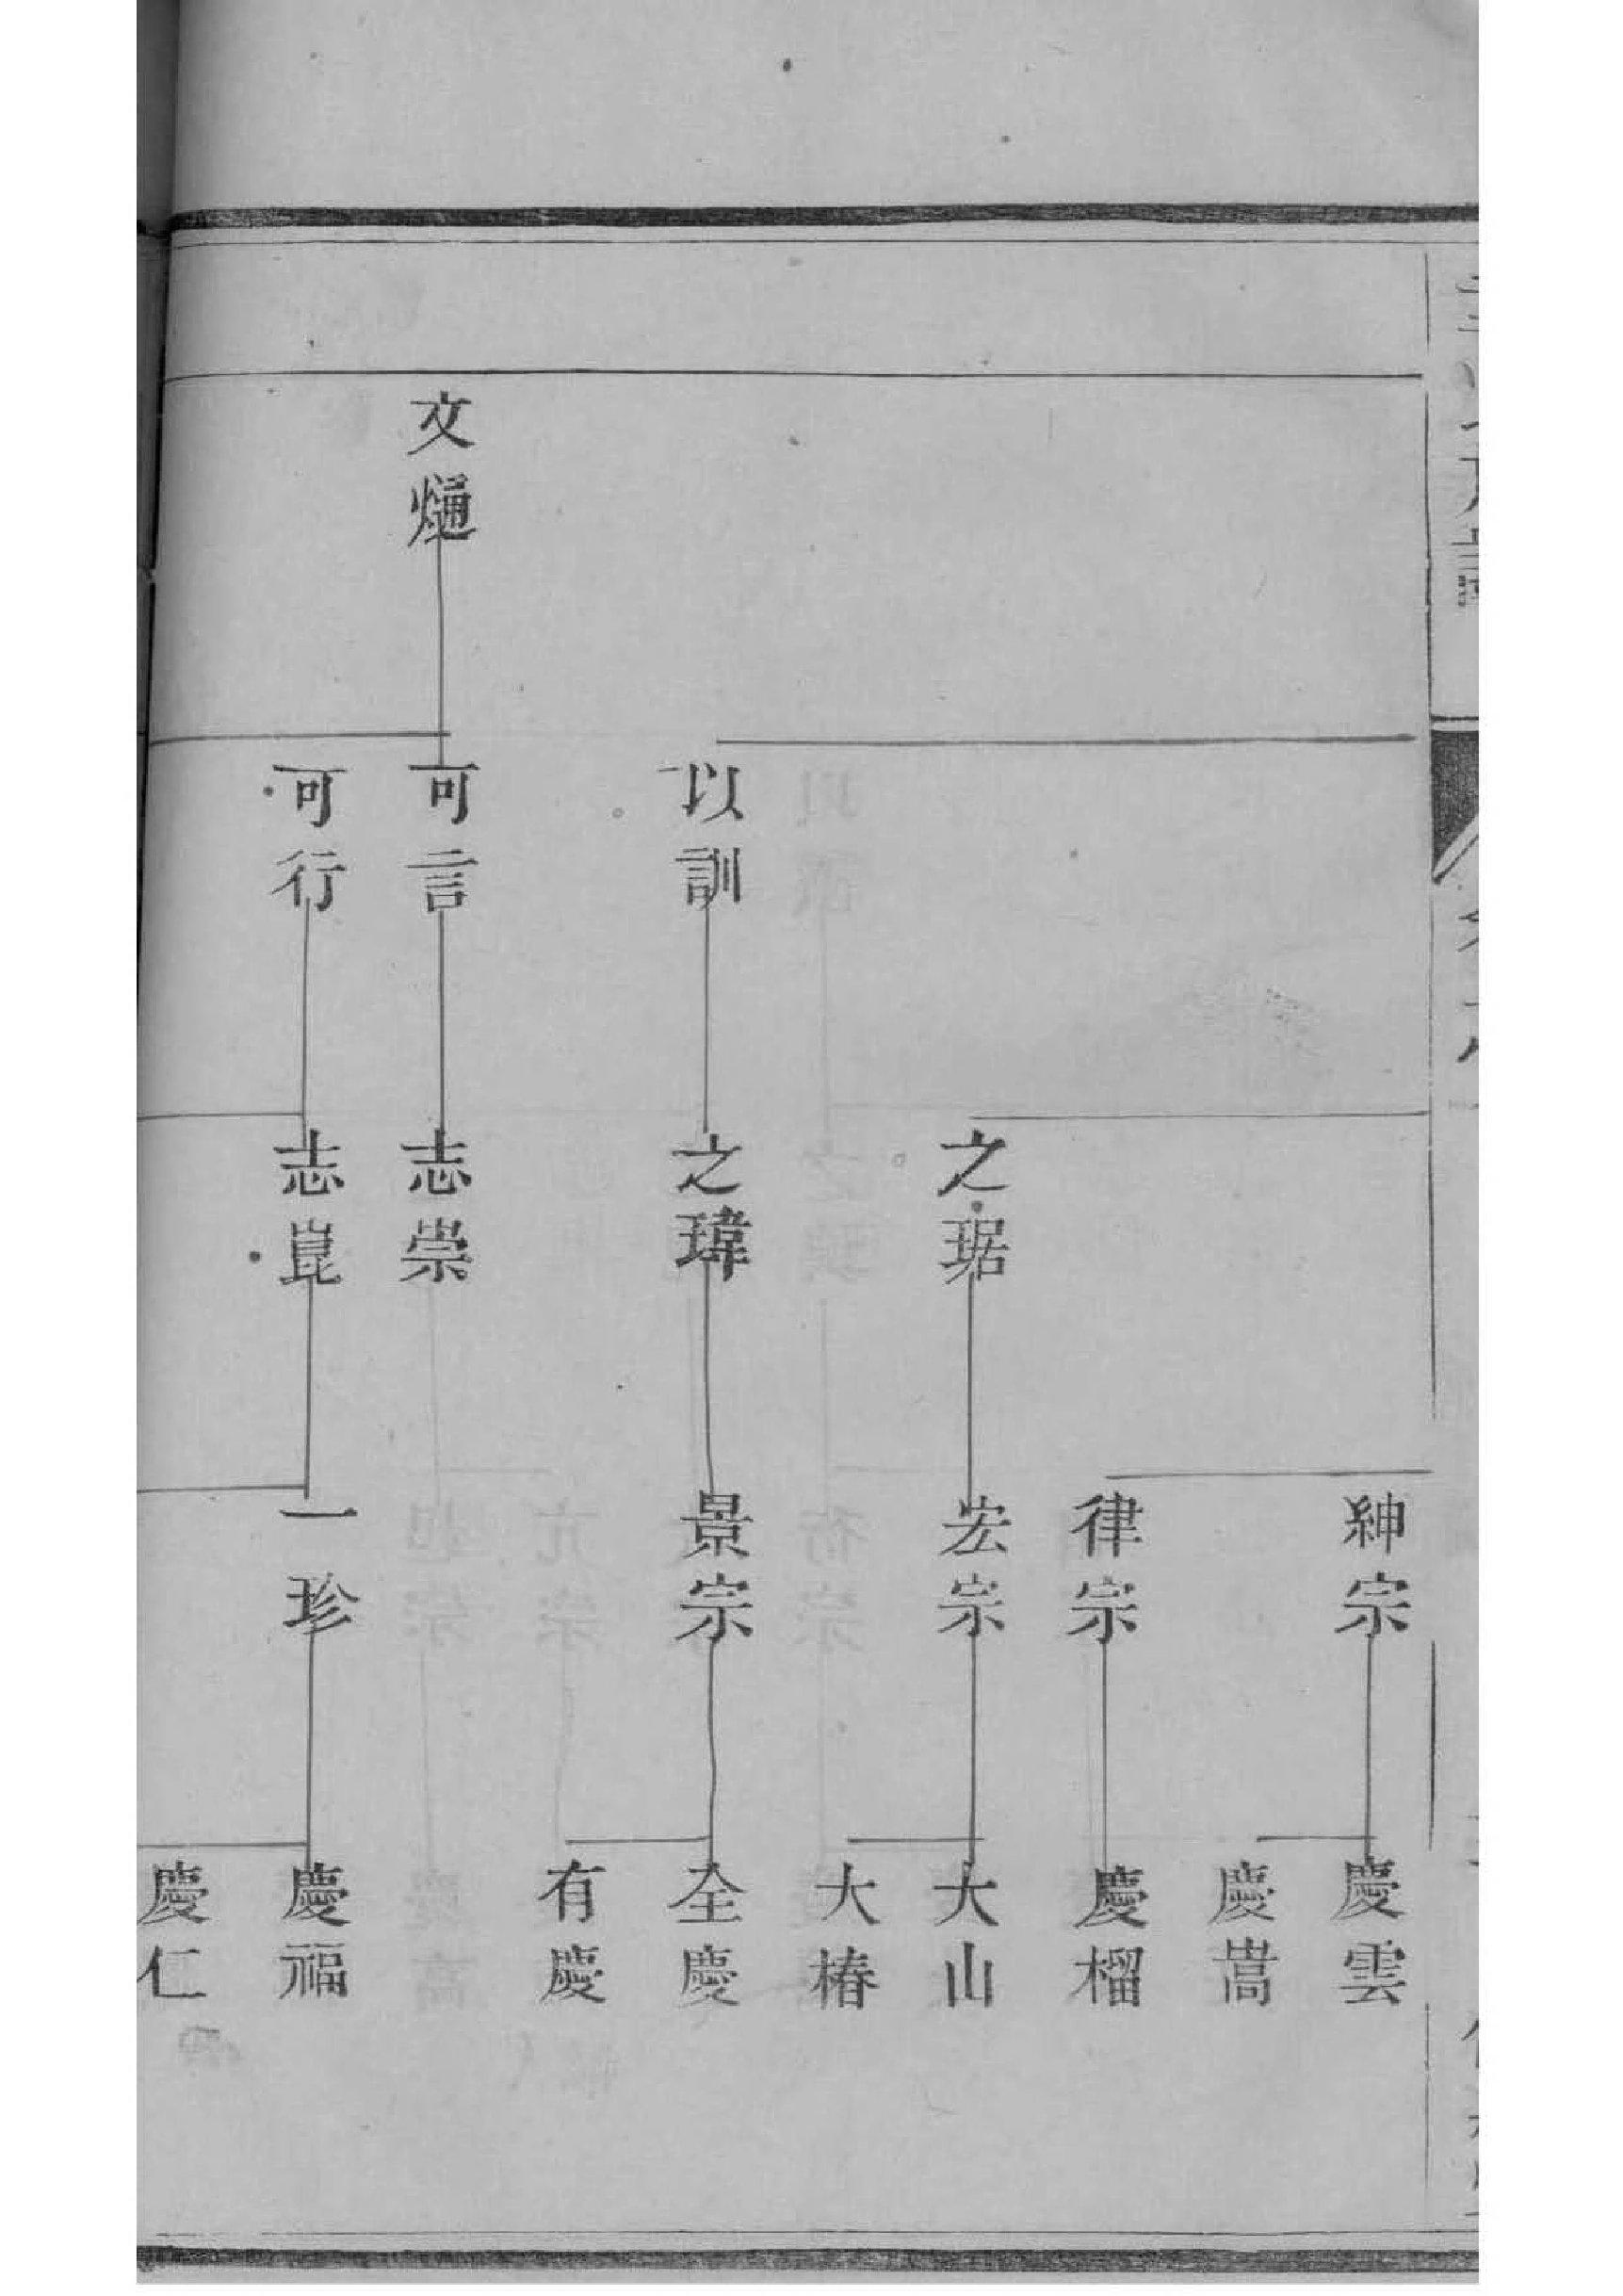 紳宗
慶雲
慶嵩
律宗
慶榴
之琚
宏宗
大山
大椿
以訓
之瑋
景宗
全慶
有慶
文熥
可言
志崇
可行
志崑
一珍
慶福
慶仁